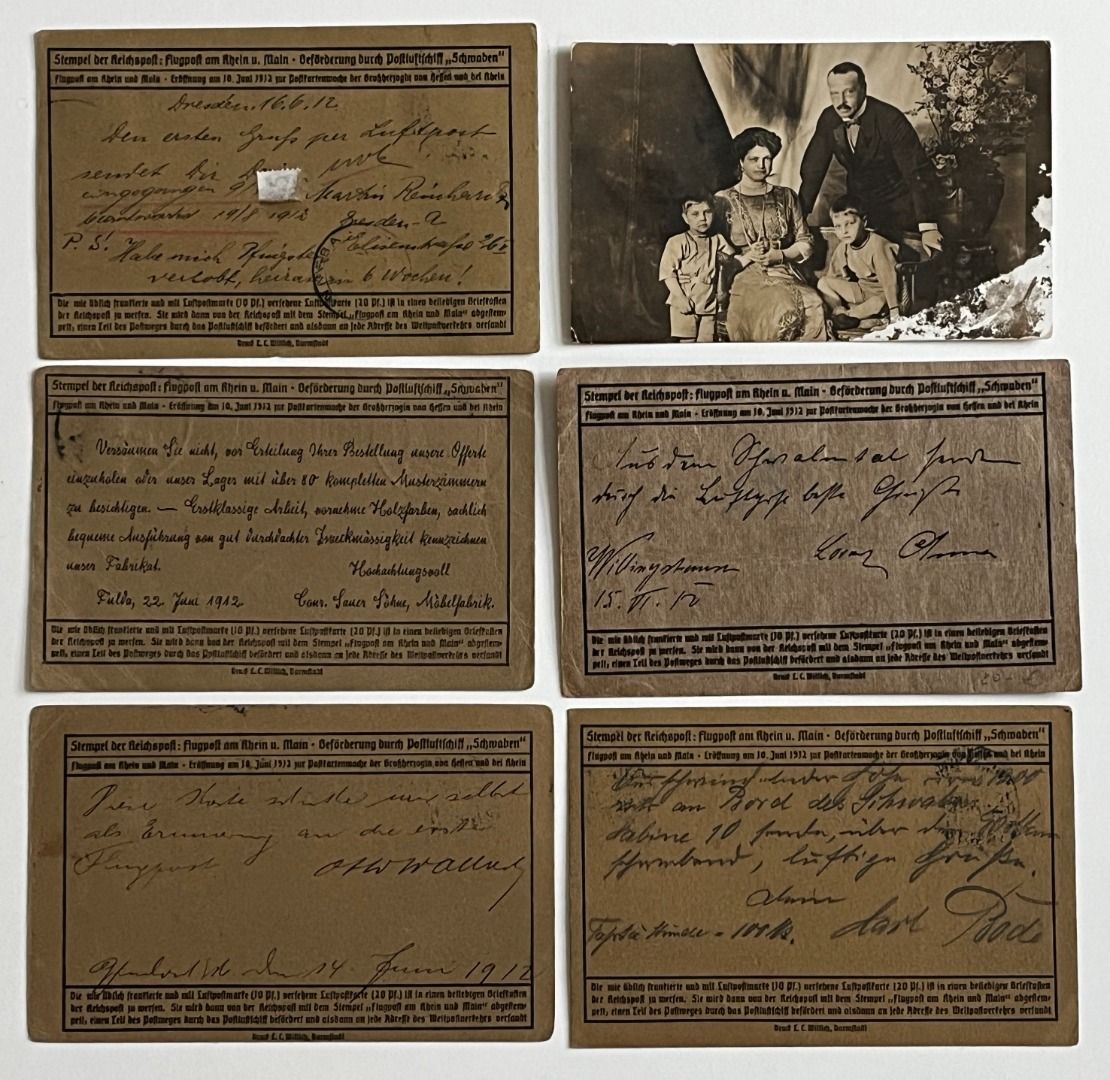 Stempel der Reichspost: Flugpost am Rhein u. Main - Beförderung durch Postluftschiff „Schwaben“
Flugpost am Rhein und Main - Eröffnung am 10. Juni 1912 zur Postkartenwoche der Großherzogin von Hessen und bei Rhein
Dresden. 16.6.12.
Den ersten Gruß per Luftpost
sendet Dir Dein
eingegangen Martin
beantwortet 19/8 1912 Dresden-A
P.S! Habe mich Pfingsten Elisenstraße
verlobt, in 6 Wochen!
Die wie üblich frankierte und mit Luftpostmarke (10 Pf.) versehene Luftpostkarte (20 Pf.) ist in einen beliebigen Briefkasten
der Reichspost zu werfen. Sie wird dann von der Reichspost mit dem Stempel „Flugpost am Rhein und Main“ abgestem-
pelt, einen Teil des Postweges durch das Postluftschiff befördert und alsdann an jede Adresse des Weltpostverkehrs versandt
Druck L. C. Wittich, Darmstadt
Stempel der Reichspost: Flugpost am Rhein u. Main - Beförderung durch Postluftschiff „Schwaben“
Flugpost am Rhein und Main - Eröffnung am 10. Juni 1912 zur Postkartenwoche der Großherzogin von Hessen und bei Rhein
Versäumen Sie nicht, vor Erteilung Ihrer Bestellung unsere Offerte
einzuholen oder unser Lager mit über 80 kompletten Musterzimmern
zu besichtigen. — Erstklassige Arbeit, vornehme Holzfarben, sachlich
bequeme Ausführung von gut durchdachter Zweckmässigkeit kennzeichnen
unser Fabrikat.
Hochachtungsvoll
Fulda, 22. Juni 1912. Conr. Sauer Söhne, Möbelfabrik.
Die wie üblich frankierte und mit Luftpostmarke (10 Pf.) versehene Luftpostkarte (20 Pf.) ist in einen beliebigen Briefkasten
der Reichspost zu werfen. Sie wird dann von der Reichspost mit dem Stempel „Flugpost am Rhein und Main“ abgestem-
pelt, einen Teil des Postweges durch das Postluftschiff befördert und alsdann an jede Adresse des Weltpostverkehrs versandt
Druck L. C. Wittich, Darmstadt
Stempel der Reichspost: Flugpost am Rhein u. Main - Beförderung durch Postluftschiff „Schwaben“
Flugpost am Rhein und Main - Eröffnung am 10. Juni 1912 zur Postkartenwoche der Großherzogin von Hessen und bei Rhein
Aus dem Schwalmtal senden
durch die Luftpost beste Grüße
Willingshausen
15. VI. 12
Die wie üblich frankierte und mit Luftpostmarke (10 Pf.) versehene Luftpostkarte (20 Pf.) ist in einen beliebigen Briefkasten
der Reichspost zu werfen. Sie wird dann von der Reichspost mit dem Stempel „Flugpost am Rhein und Main“ abgestem-
pelt, einen Teil des Postweges durch das Postluftschiff befördert und alsdann an jede Adresse des Weltpostverkehrs versandt
Druck L. C. Wittich, Darmstadt
Stempel der Reichspost: Flugpost am Rhein u. Main - Beförderung durch Postluftschiff „Schwaben“
Flugpost am Rhein und Main - Eröffnung am 10. Juni 1912 zur Postkartenwoche der Großherzogin von Hessen und bei Rhein
Diese Karte selbst
als Erinnerung an die erste
Flugpost Otto Wallach
den 14. Juni 1912
Die wie üblich frankierte und mit Luftpostmarke (10 Pf.) versehene Luftpostkarte (20 Pf.) ist in einen beliebigen Briefkasten
der Reichspost zu werfen. Sie wird dann von der Reichspost mit dem Stempel „Flugpost am Rhein und Main“ abgestem-
pelt, einen Teil des Postweges durch das Postluftschiff befördert und alsdann an jede Adresse des Weltpostverkehrs versandt
Druck L. C. Wittich, Darmstadt
Stempel der Reichspost: Flugpost am Rhein u. Main - Beförderung durch Postluftschiff „Schwaben“
Flugpost am Rhein und Main - Eröffnung am 10. Juni 1912 zur Postkartenwoche der Großherzogin von Hessen und bei Rhein
Aus schwindelnder Höhe
an Bord der Schwaben
Kabine 10 sende, über den Wolken
schwebend, luftige Grüße.
Karl Bode
Die wie üblich frankierte und mit Luftpostmarke (10 Pf.) versehene Luftpostkarte (20 Pf.) ist in einen beliebigen Briefkasten
der Reichspost zu werfen. Sie wird dann von der Reichspost mit dem Stempel „Flugpost am Rhein und Main“ abgestem-
pelt, einen Teil des Postweges durch das Postluftschiff befördert und alsdann an jede Adresse des Weltpostverkehrs versandt
Druck L. C. Wittich, Darmstadt